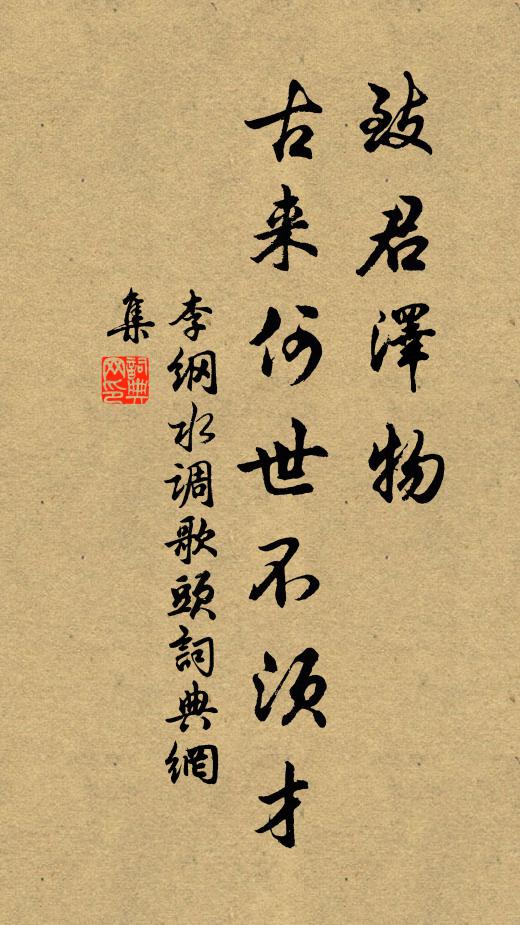 致君澤物
古来何世不须才
李纲水调歌頭詞典網
集
詞典网印